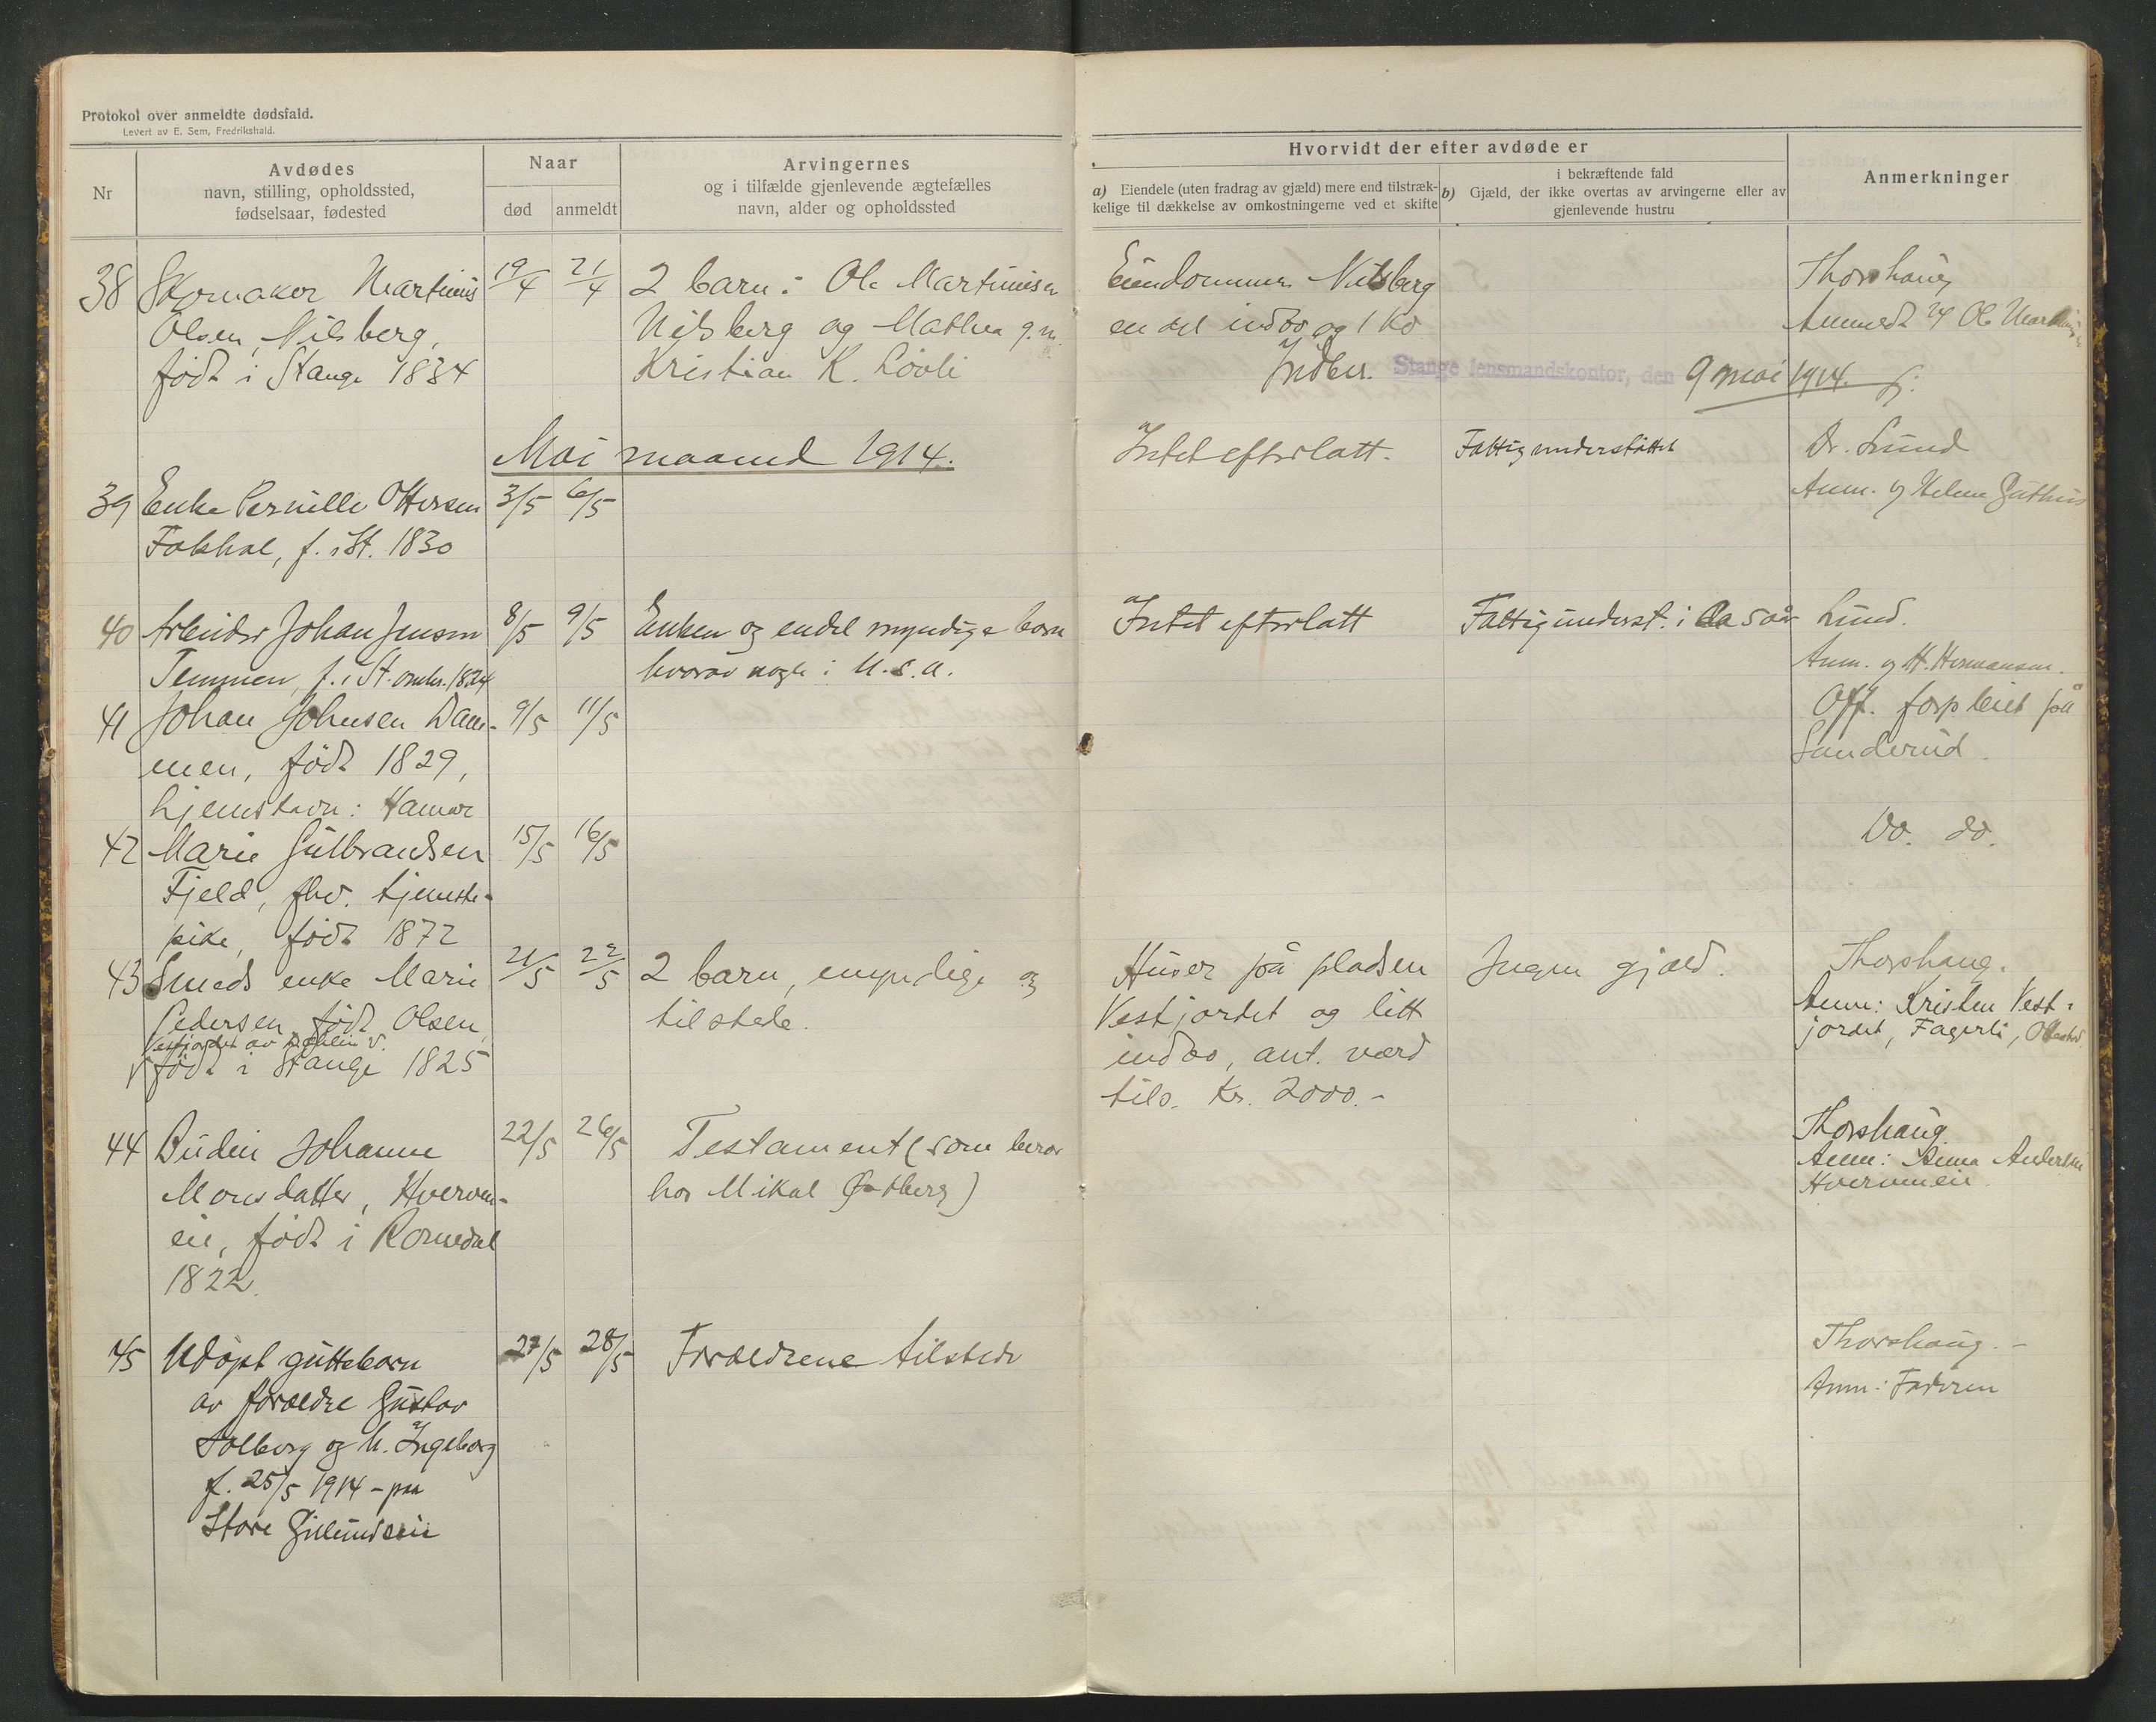 Protokol over anmeldte dødsfald.
Levert av E. Sem, Fredrikshald.
Nr
Avdødes
navn, stilling, opholdssted,
fødselsaar, fødested
Naar
død
anmeldt
Arvingernes
og i tilfælde gjenlevende ægtefælles
navn, alder og opholdssted
Hvorvidt der efter avdøde er
a) Eiendele (uten fradrag av gjæld) mere end tilstræk-
kelige til dækkelse av omkostningerne ved et skifte
i bekræftende fald
b) Gjæld, der ikke overtas av arvingerne eller av
gjenlevende hustru
Anmerkninger
38 Skomaker Martinius 19/4 21/4 2 barn: Ole Martinisen
Olsen, Nilsberg, Nilsberg og Mathea g.m.
født i Stange 1834 Kristian K. Løvli
Eiendommen Nilsberg
en del indbo og 1 ko
Thorshaug
Anmeldt af Ole
Indber. Stange lensmandskontor, den 9 mai 1914.
Mai maaned 1914.
Intet efterlatt. Fattigunderstøttet Dr. Lund
39 Enke Pernille Ottersen 3/5 6/5
Fokhol, f. i St. 1830
Anm. af Helene Guthus
40 Arbeider Johan Jensen 8/5 9/5 Enken og endel myndige barn
Temmen, f. i St. omkr. 1834 hvorav nogle i U.S.A.
Intet efterlatt Fattigunderst. i ca 5 år Lund.
Anm. af H. Hermansen.
41 Johan Johnsen Dam- 9/5 11/5
men, født 1829,
hjemstavn: Hamar
Off. forpleiet på
Sanderud.
42 Marie Gulbrandsen 15/5 16/5
Fjeld, fhv. tjeneste-
pike, født 1872
Do. do.
43 Smeds enke Marie 21/5 22/5 2 barn, myndige og
Pedersen, født Olsen, tilstede.
Vestjordet av
født i Stange 1825
Huser på pladsen
Vestjordet og litt
indbo, ant. værd
tils. Kr. 2000.-
Ingen gjæld.
Thorshaug.
Anm: Kristen Vest-
jordet, Fagerli,
44 Budeie Johanne 22/5 26/5 Testament (som beror
Monsdatter, Hverven- hos Mikal Østberg)
eie, født i Romedal
1822.
Thorshaug
Anm: Anna Andersen
Hverveneie.
45 Udøpt guttebarn 27/5 28/5 Forældrene tilstede
av forældre Gustav
Solberg og h. Ingeborg
f. 25/5 1914 - paa
Store
Thorshaug. -
Anm: Faderen